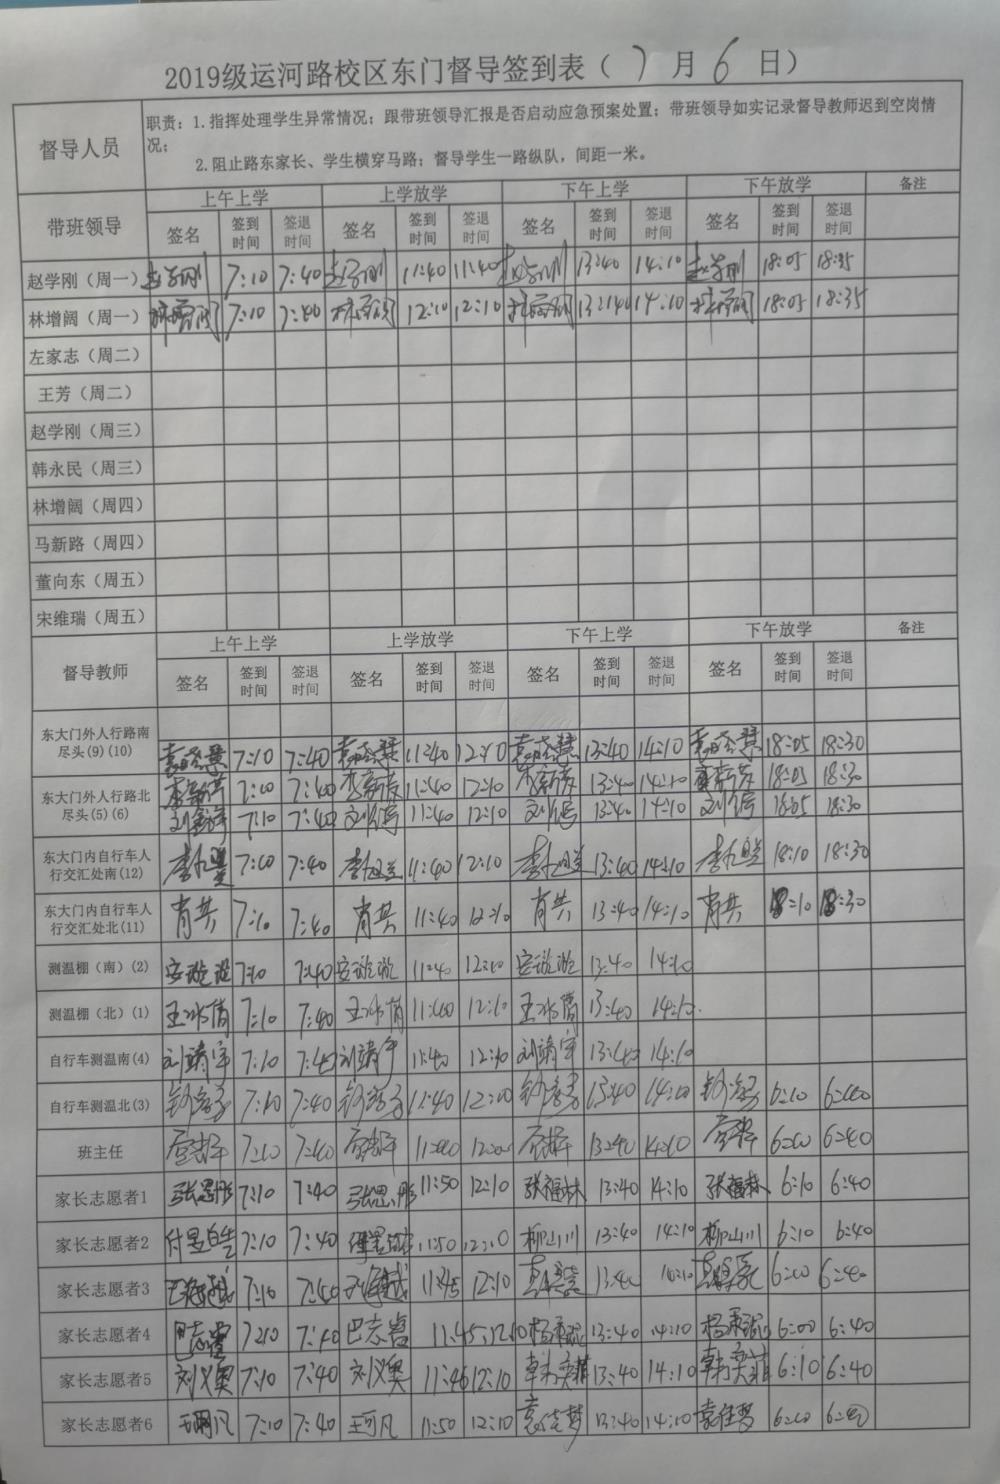 2019级运河路校区东门督导签到表（7月6日）
督导人员
职责：1.指挥处理学生异常情况；跟带班领导汇报是否启动应急预案处置；带班领导如实记录督导教师迟到空岗情况；
2.阻止路东家长、学生横穿马路；督导学生一路纵队，间距一米。
带班领导 上午上学 上学放学 下午上学 下午放学 备注
签名 签到时间 签退时间 签名 签到时间 签退时间 签名 签到时间 签退时间 签名 签到时间 签退时间
赵学刚（周一） 赵学刚 7:10 7:40 赵学刚 11:40 11:40 赵学刚 13:40 14:10 赵学刚 18:05 18:35
林增阔（周一） 林增阔 7:10 7:40 林增阔 12:10 12:10 林增阔 13:40 14:10 林增阔 18:05 18:35
左家志（周二）
王芳（周二）
赵学刚（周三）
韩永民（周三）
林增阔（周四）
马新路（周四）
董向东（周五）
宋维瑞（周五）
督导教师 上午上学 上学放学 下午上学 下午放学 备注
签名 签到时间 签退时间 签名 签到时间 签退时间 签名 签到时间 签退时间 签名 签到时间 签退时间
东大门外人行路南尽头(9)(10) 7:10 7:40 11:40 12:10 13:40 14:10 18:05 18:30
东大门外人行路北尽头(5)(6) 7:10 7:40 11:40 12:10 13:40 14:10 18:05 18:30
7:10 7:40 11:40 12:10 13:40 14:10 18:05 18:30
东大门内自行车人行交汇处南(12) 7:10 7:40 11:40 12:10 13:40 14:10 18:10 18:30
东大门内自行车人行交汇处北(11) 肖共 7:10 7:40 肖共 11:40 12:10 肖共 13:40 14:10 肖共 18:10 18:30
测温棚（南）(2) 7:10 7:40 11:40 12:10 13:40 14:10
测温棚（北）(1) 王冰倩 7:10 7:40 王冰倩 11:40 12:10 王冰倩 13:40 14:10
自行车测温南(4) 刘靖宇 7:10 7:40 刘靖宇 11:40 12:10 刘靖宇 13:40 14:10
自行车测温北(3) 7:10 7:40 11:40 12:00 13:40 14:10 6:10 6:40
班主任 7:10 7:40 11:40 12:00 13:40 14:10 6:10 6:40
家长志愿者1 张思彤 7:10 7:40 张思彤 11:50 12:10 张福林 13:40 14:10 张福林 6:10 6:40
家长志愿者2 7:10 7:40 11:50 12:10 柳山川 13:40 14:10 柳山川 6:10 6:40
家长志愿者3 7:10 7:40 11:45 12:10 13:40 14:10 6:10 6:40
家长志愿者4 巴志富 7:10 7:40 巴志富 11:45 12:10 13:40 14:10 6:00 6:40
家长志愿者5 刘义奥 7:10 7:40 刘义奥 11:46 12:10 韩奕菲 13:40 14:10 韩奕菲 6:10 6:40
家长志愿者6 王珂凡 7:10 7:40 王可凡 11:50 12:10 袁佳梦 13:40 14:10 袁佳梦 6:10